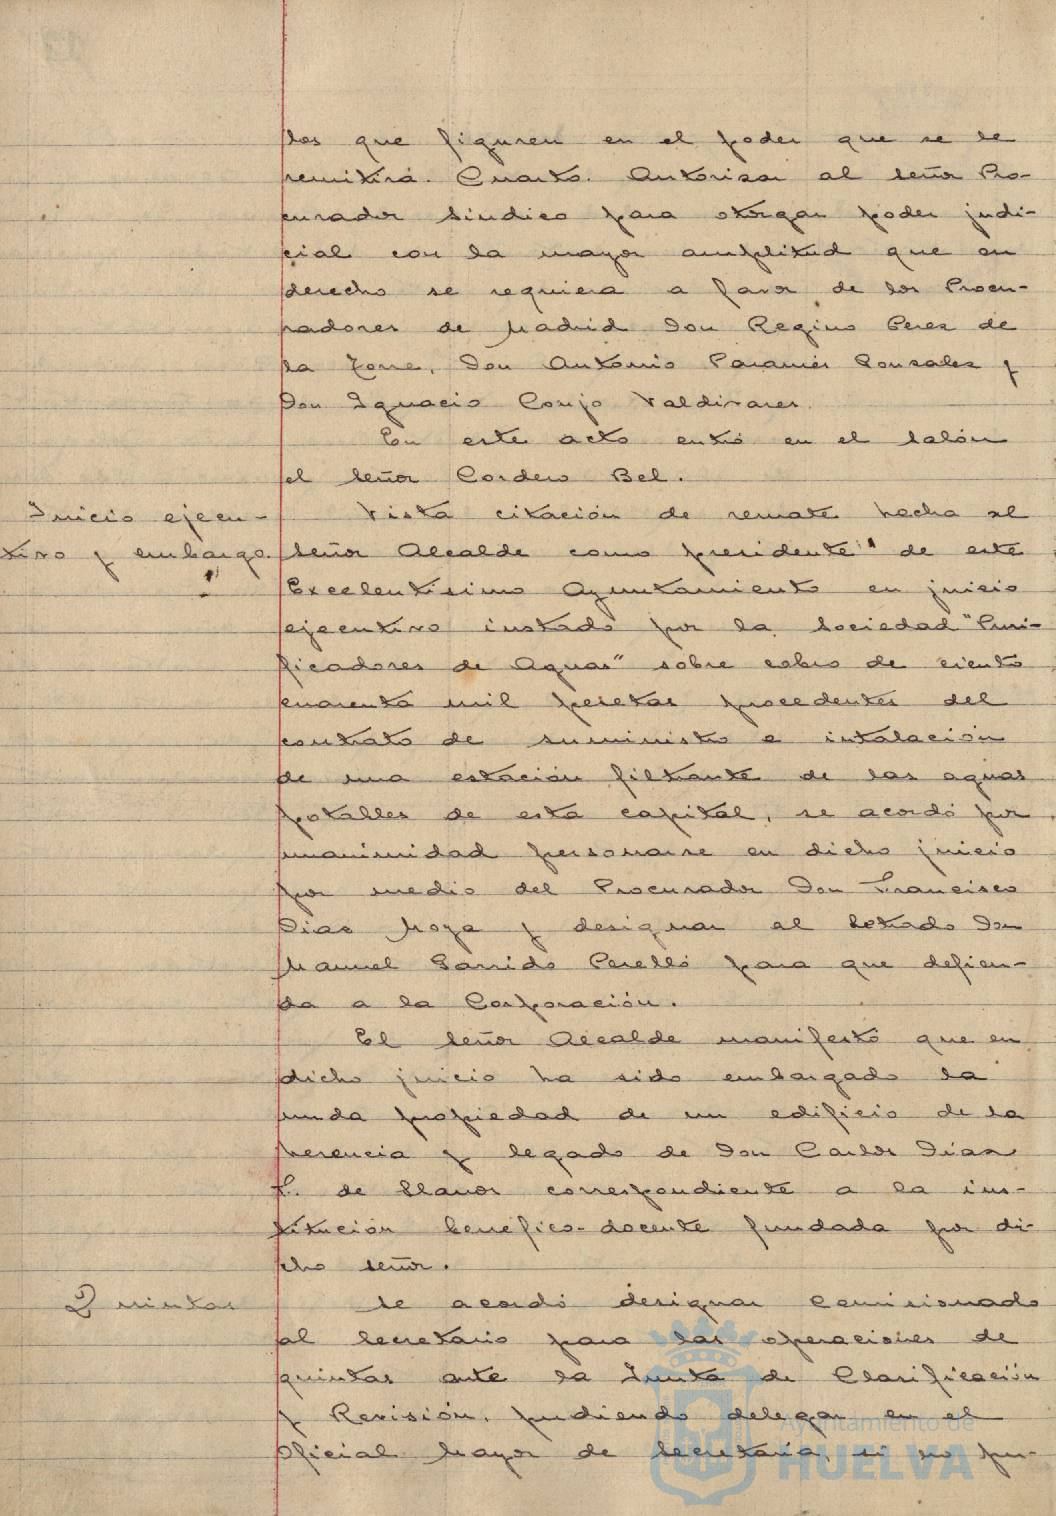 los que figuren en el poder que se le
remitirá. Cuarto. Autorizar al señor Pro-
curador Síndico para otorgar poder judi-
cial con la mayor amplitud que en
derecho se requiera a favor de los Procu-
radores de Madrid Don Regino Perez de
la Torre, Don Antonio Gonzalez y
Don Ignacio Corujo Valdivares.
En este acto entró en el salón
el señor Cordero Bel.
Inicio ejecu-
tivo y embargo.
Vista citación de remate hecha al
señor Alcalde como presidente de este
Excelentísimo Ayuntamiento en juicio
ejecutivo instado por la Sociedad "Puri-
ficadores de Aguas" sobre cobro de ciento
cuarenta mil pesetas procedentes del
contrato de suministro e intalación
de una estación filtrante de las aguas
potables de esta capital, se acordó por
unanimidad personarse en dicho juicio
por medio del Procurador Don Francisco
Diaz Moya y designar al letrado Don
Manuel Garrido Perelló para que defien-
da a la Corporación.
El señor Alcalde manifestó que en
dicho juicio ha sido embargado la
nuda propiedad de un edificio de la
herencia y legado de Don Carlos Díaz
F. de Llanos correspondiente a la ins-
titución benéfico-docente fundada por di-
cho señor.
Quintas
Se acordó designar Comisionado
al Secretario para las operaciones de
quintas ante la Junta de Clasificación
y Revisión, pudiendo delegar en el
Oficial Mayor de Secretaría, si no pu-
Ayuntamiento de
HUELVA